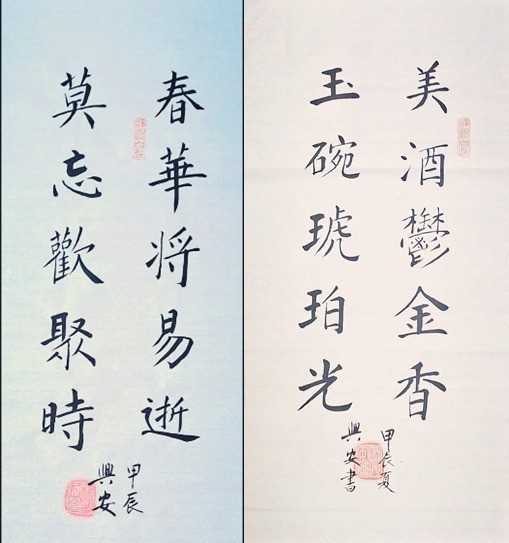 春華將易逝
莫忘歡聚時
甲辰
興安
美酒鬱金香
玉碗琥珀光
甲辰夏
興安書